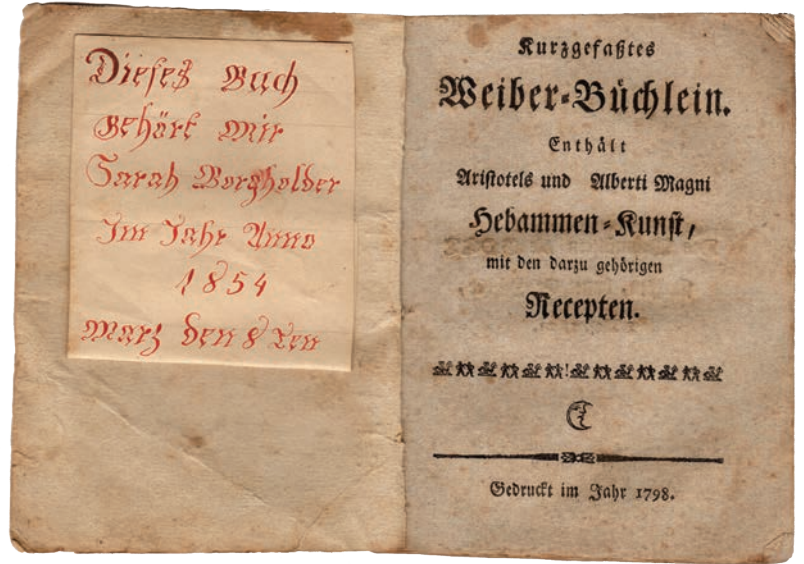 Dieses Buch
Gehört Mir
Sarah Borgholder
Im Jahr Anno
1854
Marz den 8 Ten
Kurzgefaßtes
Weiber-Büchlein.
Enthält
Aristotels und Alberti Magni
Hebammen-Kunst,
mit den darzu gehörigen
Recepten.
Gedruckt im Jahr 1798.